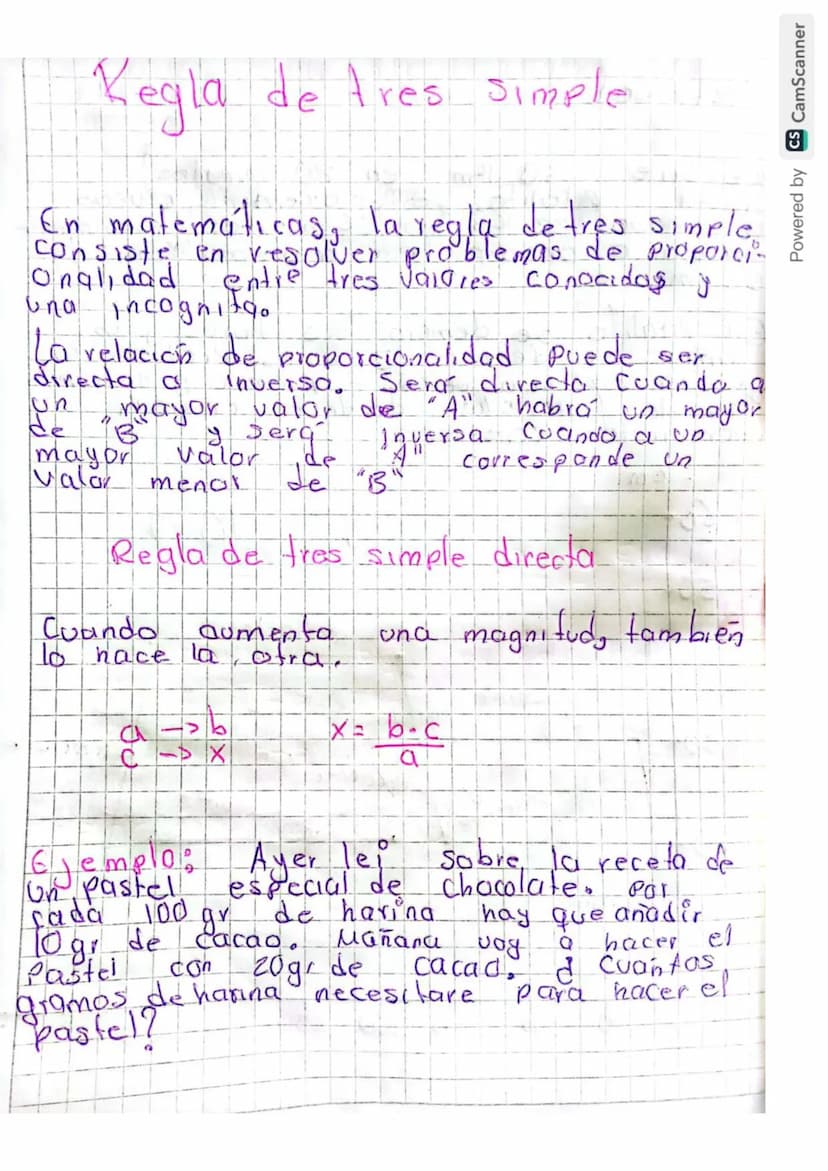 Regla de tres simple
En matemáticas, la regla de tres simple
consiste en resolver problemas de proporci-
onalidad entre tres valores conocidos y
una incognita.
La relación de proporcionalidad puede ser
directa o inversa. Será directa cuando a
un mayor valor de "A" habrá un mayor
de "B" y será inversa cuando, a un
mayor valor de "A" corresponde un
valor menor de "B"
Regla de tres simple directa
Cuando aumenta una magnitud, también
lo hace la otra.
a -> b x = b·c
c -> x a
Ejemplo: Ayer leí sobre la receta de
un pastel especial de chocolate. Por
cada 100 gr de harina hay que añadir
10 gr de cacao. Mañana voy a hacer el
pastel con 20gr de cacao. ¿ Cuantos
gramos de harina necesitare para hacer el
pastel?
Powered by CS CamScanner